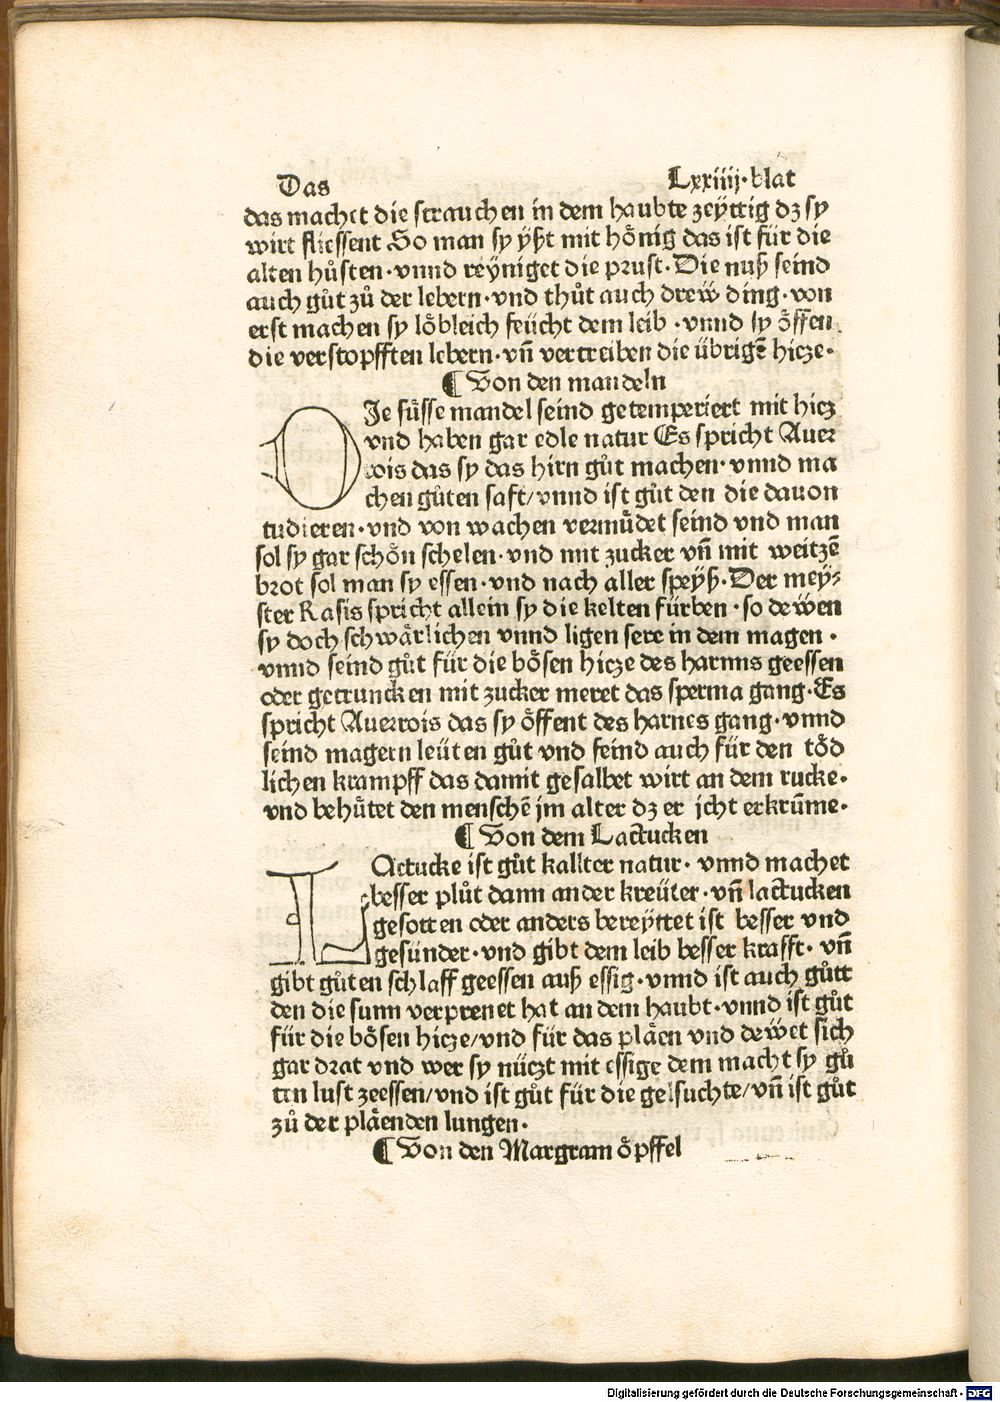 Das Lxxiiij·blat
das machet die strauchen in dem haubte zeyttig dz sy
wirt fliessent So man sy yßt mit hoͤnig das ist für die
alten huͦsten·vnnd reyniget die prust·Die nuß seind
auch guͦt zuͦ der lebern·vnd thuͦt auch drew ding·von
erst machen sy loͤbleich feücht dem leib·vnnd sy oͤffen
die verstopfften lebern·vñ vertreiben die übrigẽ hicze·
¶ Von den mandeln
DIe suͤsse mandel seind getemperiert mit hicz
vnd haben gar edle natur Es spricht Auer
rois das sy das hirn guͦt machen·vnnd ma
chen guͦten saft/vnnd ist guͦt den die dauon
tudieren·vnd von wachen vermuͤdet seind vnd man
sol sy gar schoͤn schelen·vnd mit zucker vñ mit weitzẽ
brot sol man sy essen·vnd nach aller speyß·Der mey⸗
ster Rasis spricht allein sy die kelten fürben·so dewen
sy doch schwaͤrlichen vnnd ligen sere in dem magen·
vnnd seind guͦt für die boͤsen hicze des harnns geessen
oder getruncken mit zucker meret das sperma gang·Es
spricht Auerrois das sy oͤffent des harnes gang·vnnd
seind magern leüten guͦt vnd seind auch für den toͤd
lichen krampff das damit gesalbet wirt an dem rucke·
vnd behuͤtet den menschẽ jm alter dz er icht erkrũme·
¶ Von dem Lactucken
LActucke ist guͦt kallter natur·vnnd machet
besser pluͦt dann ander kreüter·vñ lactucken
gesotten oder anders bereyttet ist besser vnd
gesünder·vnd gibt dem leib besser krafft·vñ
gibt guͦten schlaff geessen auß essig·vnnd ist auch guͦtt
den die sunn verprenet hat an dem haubt·vnnd ist guͦt
für die boͤsen hicze/vnd für das plaͤen vnd dewet sich
gar drat vnd wer sy nüczt mit essige dem macht sy guͦ
ten lust zeessen/vnd ist guͦt für die gelsuchte/vñ ist guͦt
zuͦ der plaͤenden lungen·
¶ Von den Margram oͤpffel
Digitalisierung gefördert durch die Deutsche Forschungsgemeinschaft - DFG